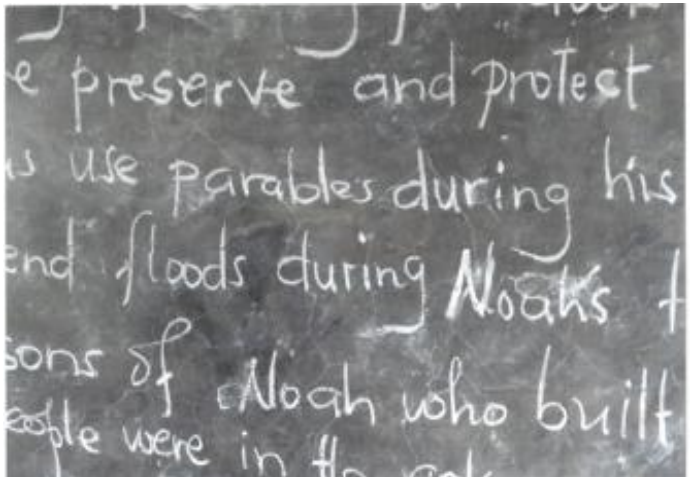 preserve and protect
use parables during his
end floods during Noahs
sons of Noah who built
eople were in